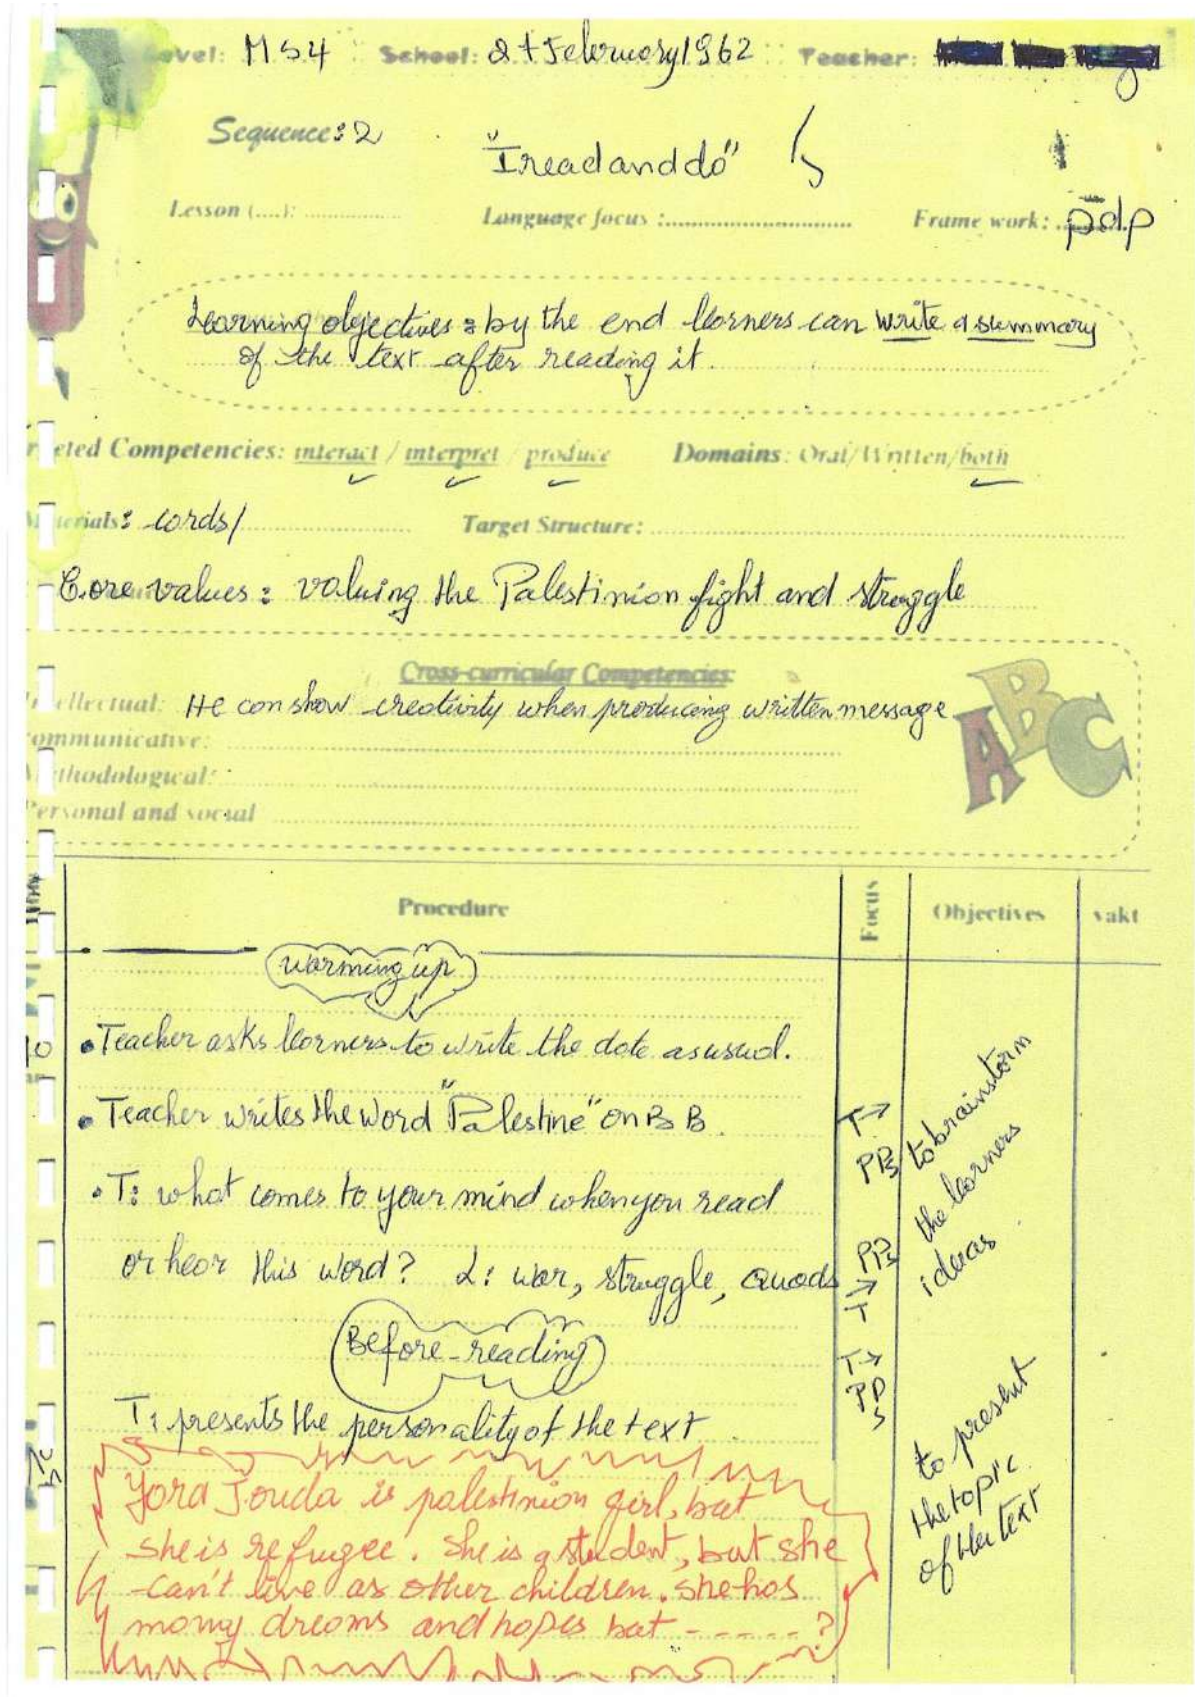 Level: MS4 School: 24 February 1962 Teacher:
Sequence: 2
"I read and do"
Lesson (....): ............... Language focus :.............................. Frame work: pdp
Learning objectives : by the end learners can write a summary
of the text after reading it.
Targeted Competencies: interact / interpret / produce Domains: Oral/Written/both
Materials: cards/ Target Structure:
Core values : valuing the Palestinian fight and struggle
Cross-curricular Competencies:
Intellectual: He can show creativity when producing written message
Communicative:
Methodological:
Personal and social
Procedure Focus Objectives vakt
warming up
• Teacher asks learners to write the date as usual.
• Teacher writes the word "Palestine" on B B.
• T: what comes to your mind when you read
or hear this word? L: war, struggle, Quods
T→
PPs
PPs
→
T
to brainstorm
the learners
ideas
Before-reading
T: presents the personality of the text
T→
PP
s
to present
the topic
of the text
Yora Jouda is palestinion girl, but
she is refugee. She is a student, but she
can't live as other children. she has
many dreams and hopes but ------?